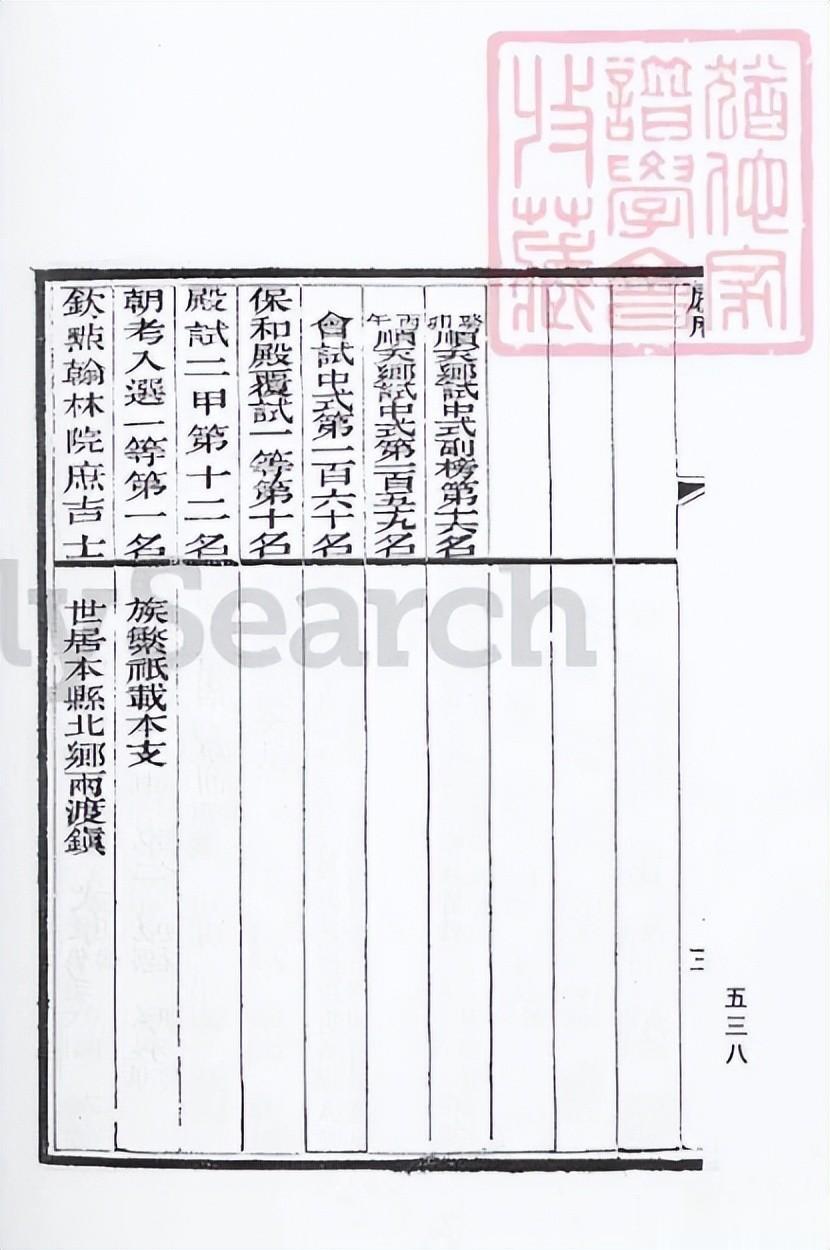 猶他家
譜學會
收藏
三
五三八
癸卯順天鄉試中式副榜第十六名
丙午順天鄉試中式第一百五十九名
會試中式第一百六十名
保和殿覆試一等第十名
殿試二甲第十二名
朝考入選一等第一名
欽點翰林院庶吉士
族繁祇載本支
世居本縣北鄉兩渡鎮
lySearch